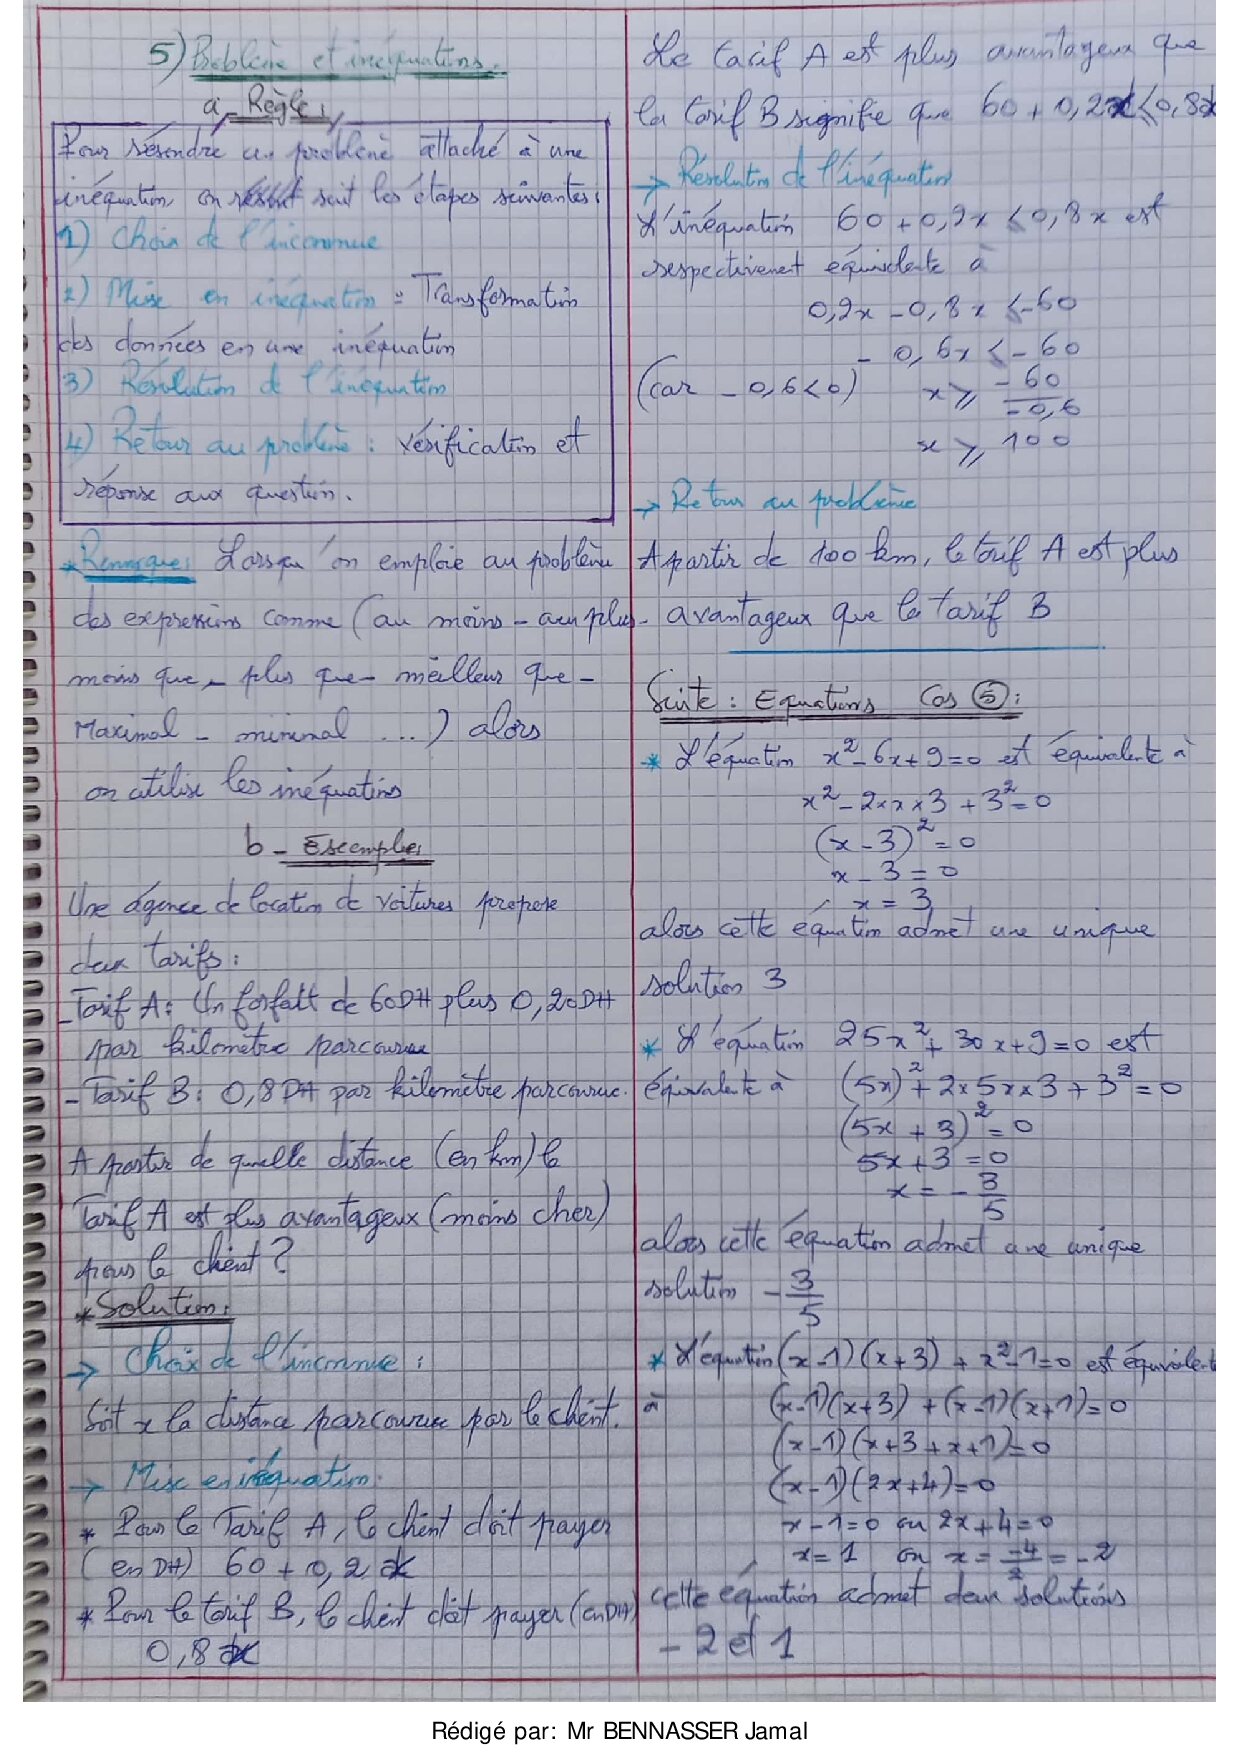 5) Problème et inéquations.
a - Règle:
Pour résendre un problème attaché à une
inéquation, on suit les étapes suivantes:
1) Choix de l'inconnue
2) Mise en inéquation = Transformation
des données en une inéquation
3) Résolution de l'inéquation
4) Retour au problème : vérification et
réponse aux question.
* Remarque: Lorsqu'on emploie au problème
des expressions comme (au moins - au plus -
moins que - plus que - meilleur que -
Maximal - minimal ...) alors
on utilise les inéquations
b - Exemple:
Une agence de location de voitures propose
deux tarifs :
- Tarif A: Un forfait de 60DH plus 0,20DH
par kilomètre parcourue
- Tarif B: 0,8DH par kilomètre parcourue.
A partir de quelle distance (en km) le
Tarif A est plus avantageux (moins cher)
pour le client ?
* Solution:
→ Choix de l'inconnue :
Soit x la distance parcourue par le client.
→ Mise en inéquation.
* Pour le Tarif A, le client doit payer
(en DH) 60 + 0,2 x
* Pour le tarif B, le client doit payer (en DH)
0,8 x
Le tarif A est plus avantageux que
la tarif B signifie que 60 + 0,2x ⩽ 0,8x
→ Résolution de l'inéquation
L'inéquation 60 + 0,2x ⩽ 0,8x est
respectivement équivalente à
0,2x - 0,8x ⩽ -60
- 0,6x ⩽ - 60
(car - 0,6 < 0) x ⩾ -60/-0,6
x ⩾ 100
→ Retour au problème
A partir de 100 km, le tarif A est plus
avantageux que le tarif B
Suite : Equations Cas ⑤ :
* L'équation x² - 6x + 9 = 0 est équivalente à
x² - 2 × x × 3 + 3² = 0
(x - 3)² = 0
x - 3 = 0
x = 3
alors cette équation admet une unique
solution 3
* L'équation 25x² + 30x + 9 = 0 est
équivalente à (5x)² + 2 × 5x × 3 + 3² = 0
(5x + 3)² = 0
5x + 3 = 0
x = - 3/5
alors cette équation admet une unique
solution - 3/5
* L'équation (x - 1)(x + 3) + x² - 1 = 0 est équivalente
à (x - 1)(x + 3) + (x - 1)(x + 1) = 0
(x - 1)(x + 3 + x + 1) = 0
(x - 1)(2x + 4) = 0
x - 1 = 0 ou 2x + 4 = 0
x = 1 ou x = -4/2 = -2
cette équation admet deux solutions
- 2 et 1
Rédigé par: Mr BENNASSER Jamal